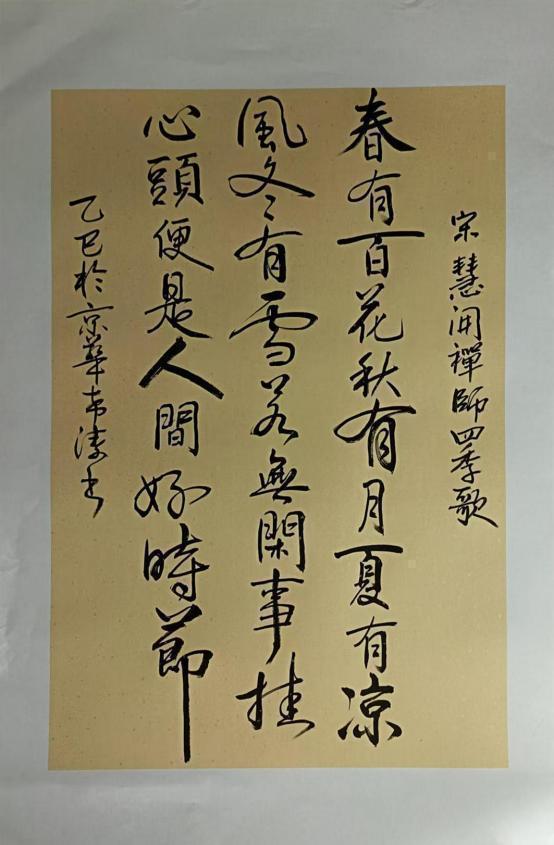 宋慧開禪師四季歌
春有百花秋有月夏有凉
風冬冬有雪若無閑事挂
心頭便是人間好時節
乙巳於京華